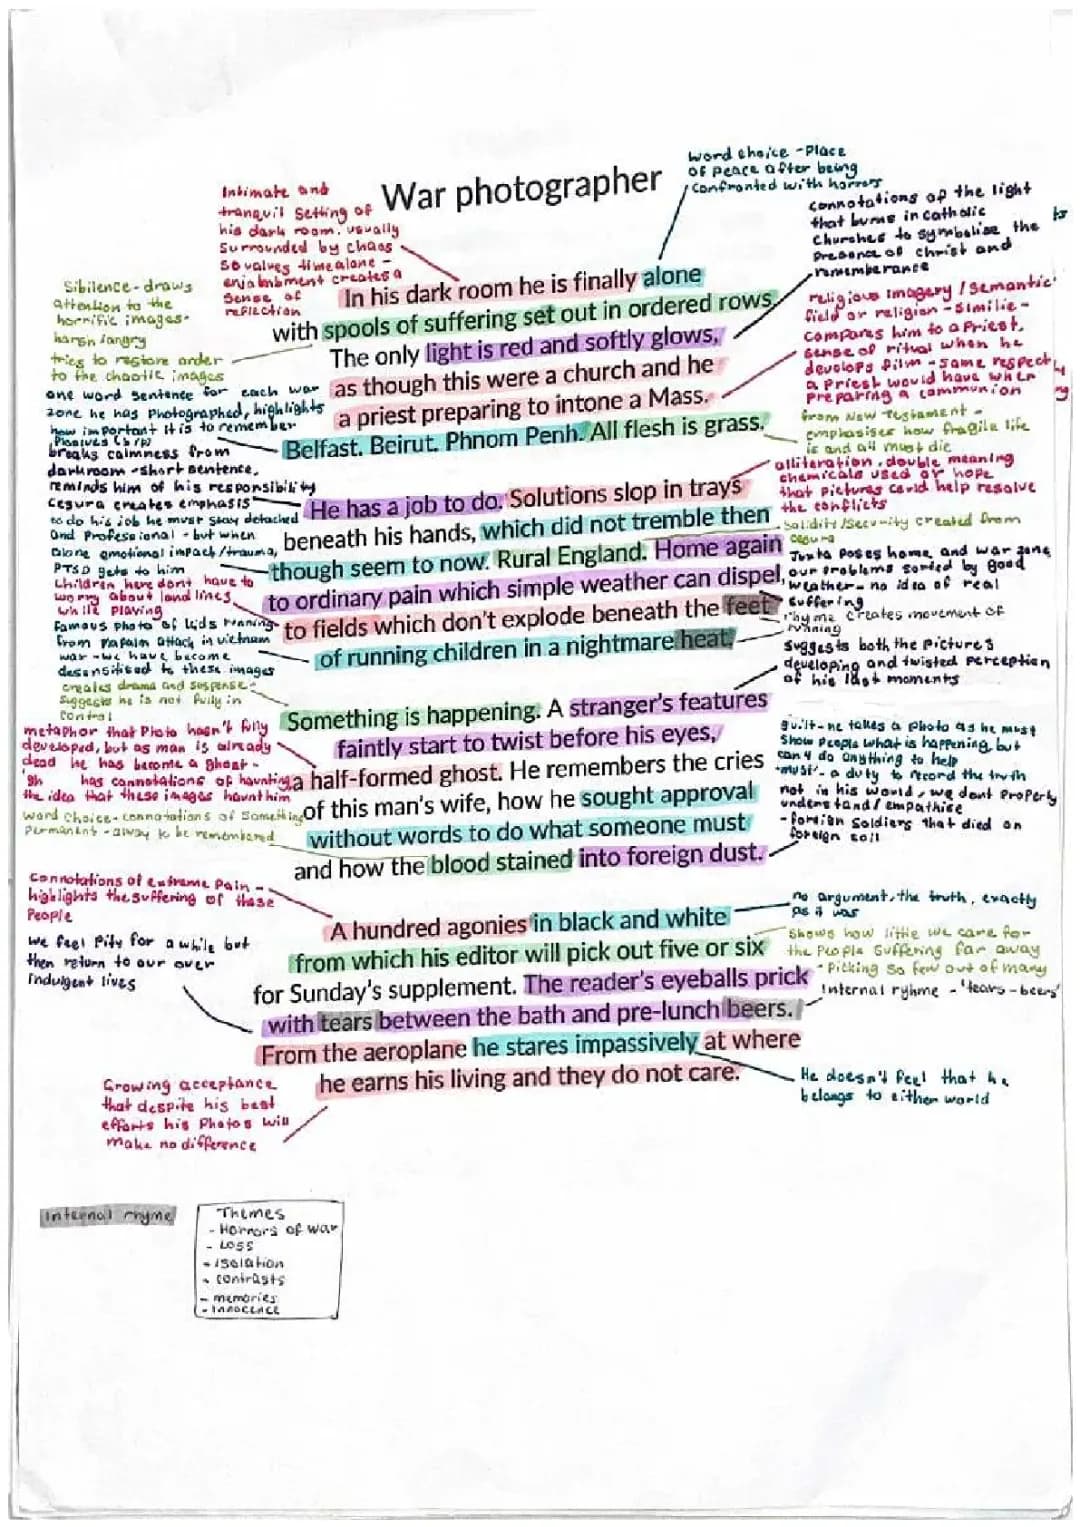 War photographer
word choice - Place
of peace after being
confronted with horrors
Intimate and
tranquil setting of
his dark room. usually
surrounded by chaos
so values time alone -
enjambment creates a
sense of
reflection
connotations of the light
that burns in catholic
churches to symbolise the
presence of christ and
rememberance
Sibilence - draws
attention to the
horrific images-
harsh/angry
tries to restore order
to the chaotic images
religious imagery / semantic
field of religion - similie -
compares him to a priest,
sense of ritual when he
develops film - same respect
a priest would have when
preparing a communion
In his dark room he is finally alone
with spools of suffering set out in ordered rows.
The only light is red and softly glows,
as though this were a church and he
a priest preparing to intone a Mass.
Belfast. Beirut. Phnom Penh. All flesh is grass.
one word sentence for each war
zone he has photographed, highlights
how important it is to remember
from New Testament -
emphasises how fragile life
is and all must die
breaks calmness from
darkroom - short sentence,
reminds him of his responsibility
alliteration, double meaning
chemicals used or hope
that pictures could help resolve
the conflicts
cesura creates emphasis
to do his job he must stay detached
and professional - but when
alone emotional impact/trauma,
PTSD gets to him
solidity/security created from
cesura
He has a job to do. Solutions slop in trays
beneath his hands, which did not tremble then
though seem to now. Rural England. Home again
to ordinary pain which simple weather can dispel,
to fields which don't explode beneath the feet
of running children in a nightmare heat.
Juxtaposes home and war zone,
our problems sorted by good
weather - no idea of real
suffering
Children here dont have to
worry about land lines
while playing
rhyme creates movement of
running
famous photo of kids running
from napalm attack in vietnam
war - we have become
desensitised to these images
suggests both the pictures
developing and twisted perception
of his last moments
creates drama and suspense -
suggests he is not fully in
control
Something is happening. A stranger's features
faintly start to twist before his eyes,
a half-formed ghost. He remembers the cries
of this man's wife, how he sought approval
without words to do what someone must
and how the blood stained into foreign dust.
metaphor that photo hasn't fully
developed, but as man is already
dead he has become a ghost -
'gh has connotations of haunting
the idea that these images haunt him
guilt - he takes a photo as he must
show people what is happening, but
can't do anything to help
"must" - a duty to record the truth
not in his world, we dont properly
understand / empathise
- foreign soldiers that died on
foreign soil
word choice - connotations of something
permanent - always to be remembered
Connotations of extreme pain -
highlights the suffering of these
people
no argument, the truth, exactly
as it was
A hundred agonies in black and white
from which his editor will pick out five or six
for Sunday's supplement. The reader's eyeballs prick
with tears between the bath and pre-lunch beers.
From the aeroplane he stares impassively at where
he earns his living and they do not care.
We feel pity for a while but
then return to our over
indulgent lives
shows how little we care for
the people suffering far away
- Picking so few out of many
internal ryhme - 'tears - beers'
He doesn't feel that he
belongs to either world
Growing acceptance
that despite his best
efforts his photos will
make no difference
Internal rhyme
Themes
- Horrors of war
- Loss
- isolation
- contrasts
- memories
- innocence